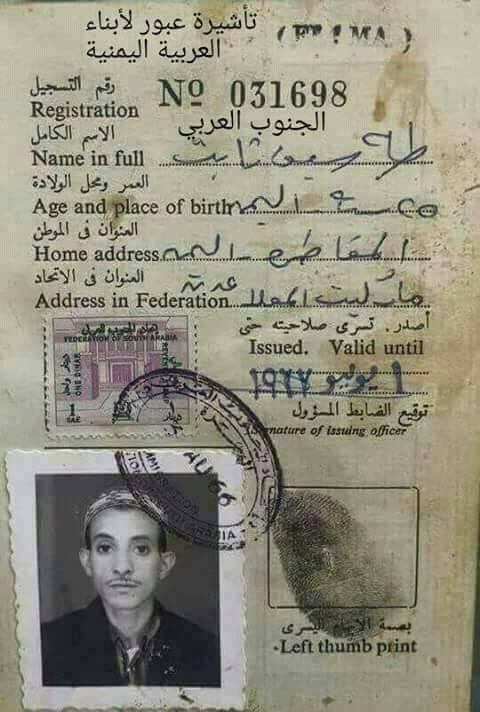 تأشيرة عبور لأبناء
العربية اليمنية
رقم التسجيل
Registration
No 031698
الجنوب العربي
الاسم الكامل
Name in full طه ثابت
العمر ومحل الولادة
Age and place of birth ٢٥ سنة اليمن
العنوان في الموطن
Home address المقاطره - اليمن
العنوان في الاتحاد
Address in Federation المعلا عدن
أصدر. تسرى صلاحيته حتى
Issued. Valid until
١ يوليو ١٩٦٧
توقيع الضابط المسؤول
Signature of issuing officer
اتحاد الجنوب العربي
FEDERATION OF SOUTH ARABIA
ONE DINAR
دينار واحد
REVENUE
1
SAR
AU 66
IMMIGRATION
ARABIA
بصمة الإبهام اليسرى
Left thumb print